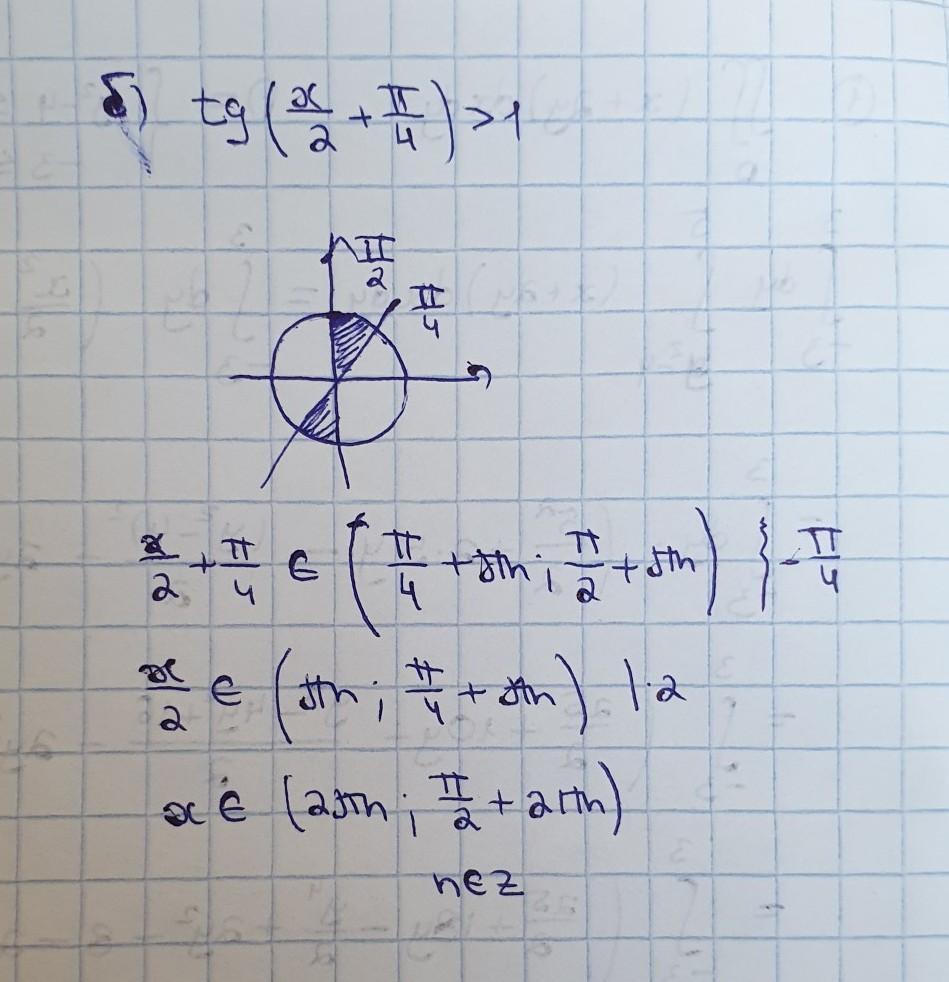 б) tg(x/2 + π/4) > 1
π/2
π/4
x/2 + π/4 ∈ (π/4 + πn; π/2 + πn) } - π/4
x/2 ∈ (πn; π/4 + πn) |·2
x ∈ (2πn; π/2 + 2πn)
n∈Z